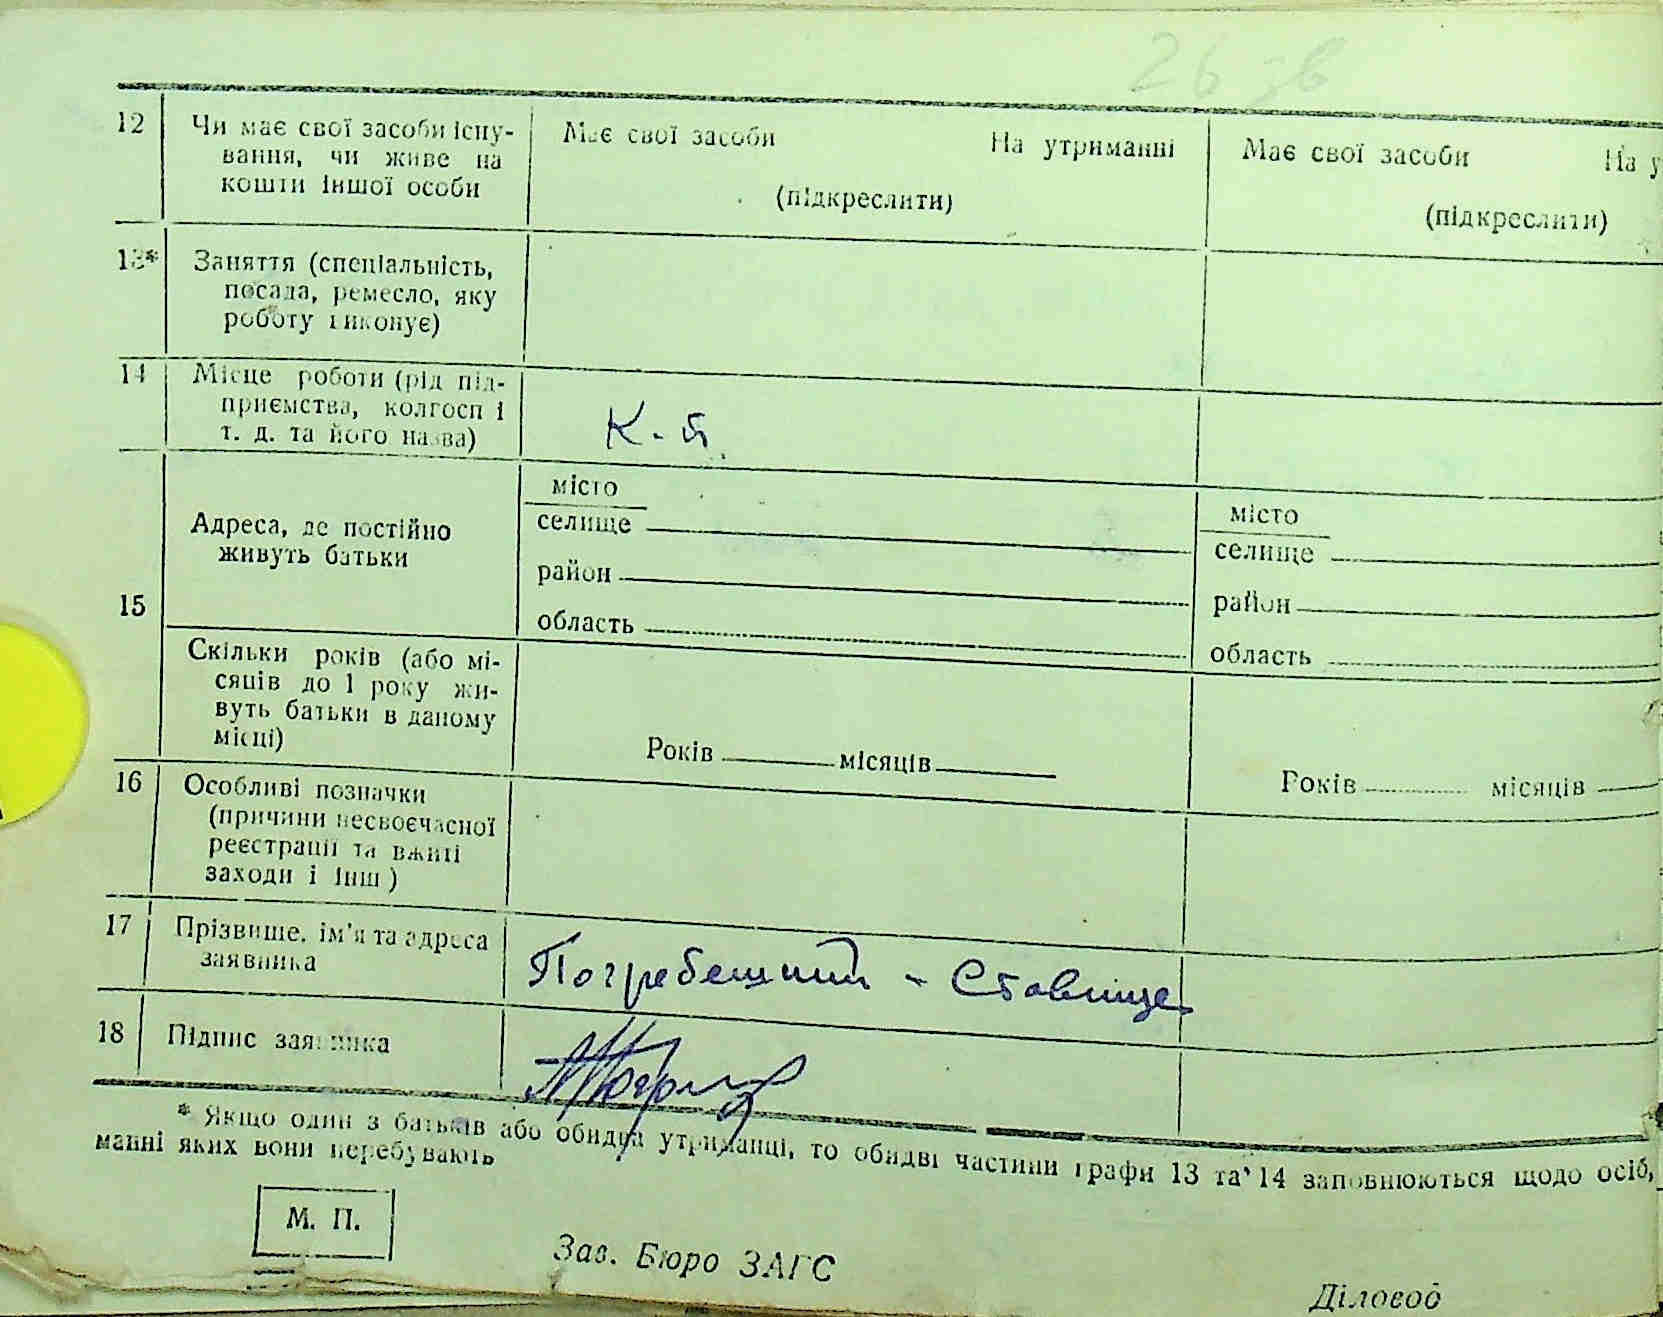 26 зв
12
Чи має свої засоби існу-
вання, чи живе на
кошти іншої особи
Має свої засоби На утриманні
(підкреслити)
Має свої засоби На у
(підкреслити)
13*
Заняття (спеціальність,
посада, ремесло, яку
роботу виконує)
14
Місце роботи (рід під-
приємства, колгосп і
т. д. та його назва)
15
Адреса, де постійно
живуть батьки
місто
селище
район
область
місто
селище
район
область
Скільки років (або мі-
сяців до 1 року жи-
вуть батьки в даному
місці)
Років місяців
Років місяців
16
Особливі позначки
(причини несвоєчасної
реєстрації та вжиті
заходи і інш)
17
Прізвище, ім'я та адреса
заявника
Погребещий - Ставище
18
Підпис заявника
* Якщо один з батьків або обидва утриманці, то обидві частини графи 13 та 14 заповнюються щодо осіб,
манні яких вони перебувають
М. П.
Зав. Бюро ЗАГС
Діловод